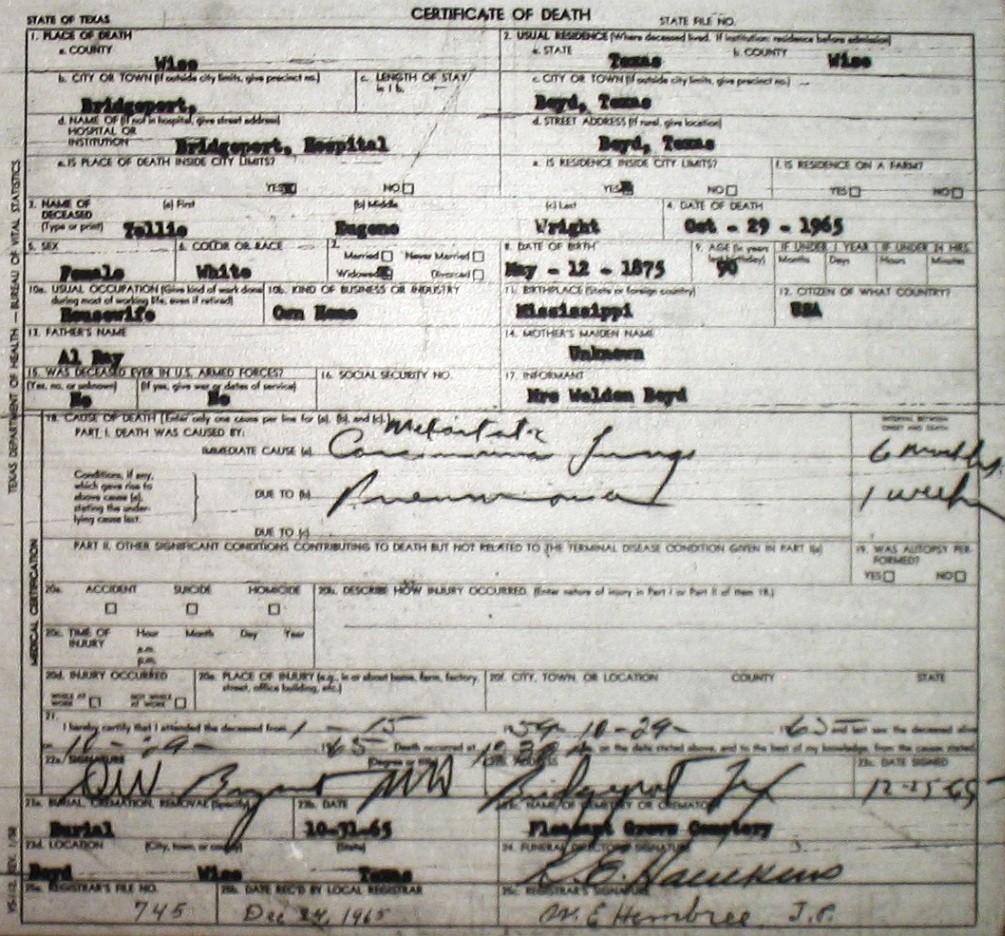 CERTIFICATE OF DEATH
STATE OF TEXAS STATE FILE NO.
1. PLACE OF DEATH 2. USUAL RESIDENCE (Where deceased lived. If institution: residence before admission)
a. COUNTY a. STATE b. COUNTY
Wise Texas Wise
b. CITY OR TOWN (If outside city limits, give precinct no.) c. LENGTH OF STAY in 1 b. c. CITY OR TOWN (If outside city limits, give precinct no.)
Bridgeport, Boyd, Texas
d. NAME OF (If not in hospital, give street address) HOSPITAL OR INSTITUTION d. STREET ADDRESS (If rural, give location)
Bridgeport, Hospital Boyd, Texas
e. IS PLACE OF DEATH INSIDE CITY LIMITS? e. IS RESIDENCE INSIDE CITY LIMITS? f. IS RESIDENCE ON A FARM?
YES NO YES NO YES NO
3. NAME OF DECEASED (a) First (b) Middle (c) Last 4. DATE OF DEATH
(Type or print) Tollie Eugene Wright Oct - 29 - 1965
5. SEX 6. COLOR OR RACE 7. Married Never Married 8. DATE OF BIRTH 9. AGE (In years last birthday) IF UNDER 1 YEAR IF UNDER 24 HRS.
Widowed Divorced Months Days Hours Minutes
Female White May - 12 - 1875 90
10a. USUAL OCCUPATION (Give kind of work done during most of working life, even if retired) 10b. KIND OF BUSINESS OR INDUSTRY 11. BIRTHPLACE (State or foreign country) 12. CITIZEN OF WHAT COUNTRY?
Housewife Own Home Mississippi USA
13. FATHER'S NAME 14. MOTHER'S MAIDEN NAME
Al Ray Unknown
15. WAS DECEASED EVER IN U.S. ARMED FORCES? 16. SOCIAL SECURITY NO. 17. INFORMANT
(Yes, no, or unknown) (If yes, give war or dates of service)
No No Mrs Weldon Boyd
18. CAUSE OF DEATH [Enter only one cause per line for (a), (b), and (c).] INTERVAL BETWEEN ONSET AND DEATH
PART I. DEATH WAS CAUSED BY: Metastatic
IMMEDIATE CAUSE (a) Carcinoma Lungs 6 months
Conditions, if any, which gave rise to above cause (a), stating the underlying cause last.
DUE TO (b) Pneumonia 1 week
DUE TO (c)
PART II. OTHER SIGNIFICANT CONDITIONS CONTRIBUTING TO DEATH BUT NOT RELATED TO THE TERMINAL DISEASE CONDITION GIVEN IN PART I(a) 19. WAS AUTOPSY PERFORMED?
YES NO
20a. ACCIDENT SUICIDE HOMICIDE 20b. DESCRIBE HOW INJURY OCCURRED. (Enter nature of injury in Part I or Part II of item 18.)
20c. TIME OF INJURY Hour Month Day Year
a.m.
p.m.
20d. INJURY OCCURRED 20e. PLACE OF INJURY (e.g., in or about home, farm, factory, street, office building, etc.) 20f. CITY, TOWN, OR LOCATION COUNTY STATE
WHILE AT WORK NOT WHILE AT WORK
21.
I hereby certify that I attended the deceased from 1 - 15 1959 10-29- 1965 and last saw the deceased alive
10-29- 1965 Death occurred at on the date stated above, and to the best of my knowledge, from the causes stated.
22a. SIGNATURE (Degree or title) 22b. ADDRESS 22c. DATE SIGNED
MD Bridgeport Tex 12-25-65
23a. BURIAL, CREMATION, REMOVAL (Specify) 23b. DATE 23c. NAME OF CEMETERY OR CREMATORY
Burial 10-31-65 Pleasant Grove Cemetery
23d. LOCATION (City, town, or county) (State) 24. FUNERAL DIRECTOR'S SIGNATURE
Boyd Wise Texas Hawkins
25a. REGISTRAR'S FILE NO. 25b. DATE REC'D BY LOCAL REGISTRAR 25c. REGISTRAR'S SIGNATURE
745 Dec 24, 1965 W. E Hembree J.P.
TEXAS DEPARTMENT OF HEALTH — BUREAU OF VITAL STATISTICS
MEDICAL CERTIFICATION
VS-112, REV. 1/58